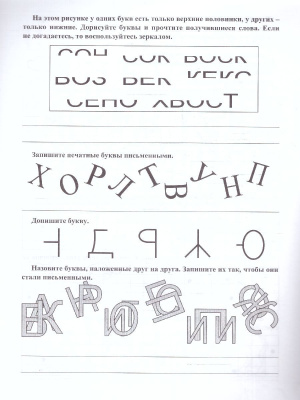 На этом рисунке у одних букв есть только верхние половинки, у других –
только нижние. Дорисуйте буквы и прочтите получившиеся слова. Если
не догадаетесь, то воспользуйтесь зеркалом.
СОН СОК ВОСК
ВОЗ ВЕК КЕКС
СЕНО ХВОСТ
Запишите печатные буквы письменными.
Х О Р Л Т В У Н П
Допишите букву.
Назовите буквы, наложенные друг на друга. Запишите их так, чтобы они
стали письменными.